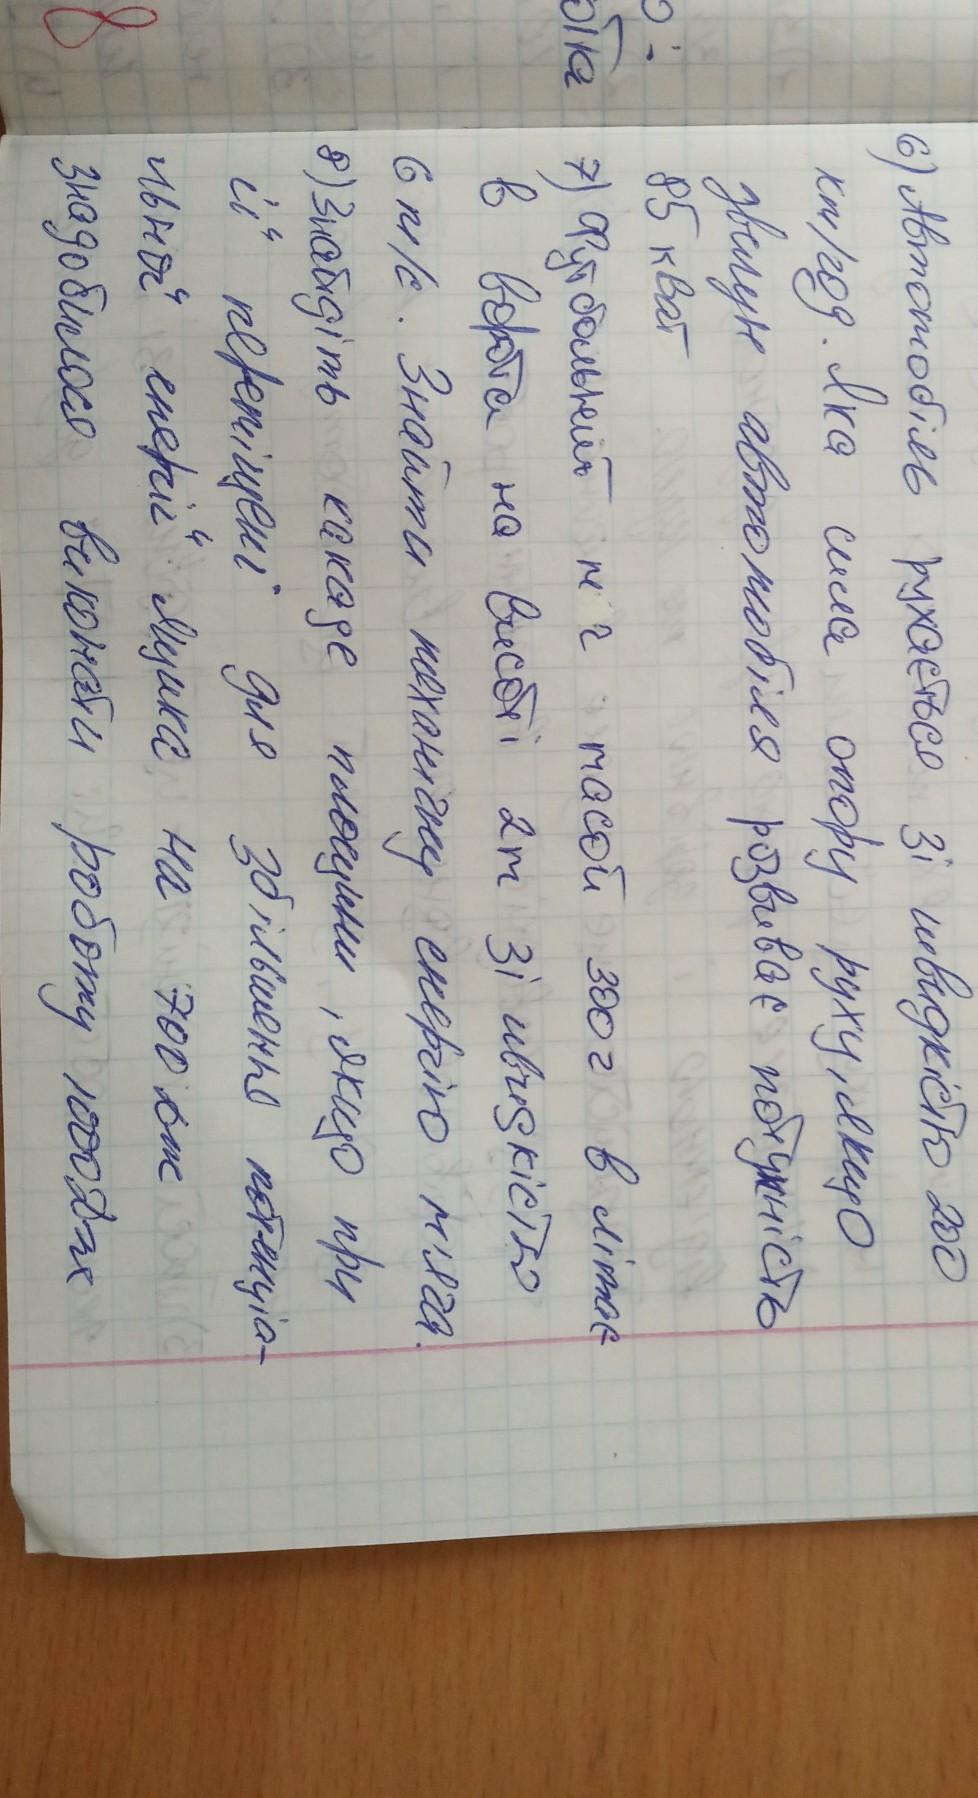 6) Автомобіль рухається зі швидкістю 200
км/год. Яка сила опору руху, якщо
двигун автомобіля розвиває потужність
85 кват
7) Футбольний м г масой 300 г в літає
в ворота на висоті 2м зі швидкістю
6 м/с. Знайти механічну енергію м'яча.
8) Знайдіть какаде площини, якщо при
її переміщені для збільшеня потенціа-
льної енергії мушка на 700 дж
знадобілосо виконати роботу 1000дж
8